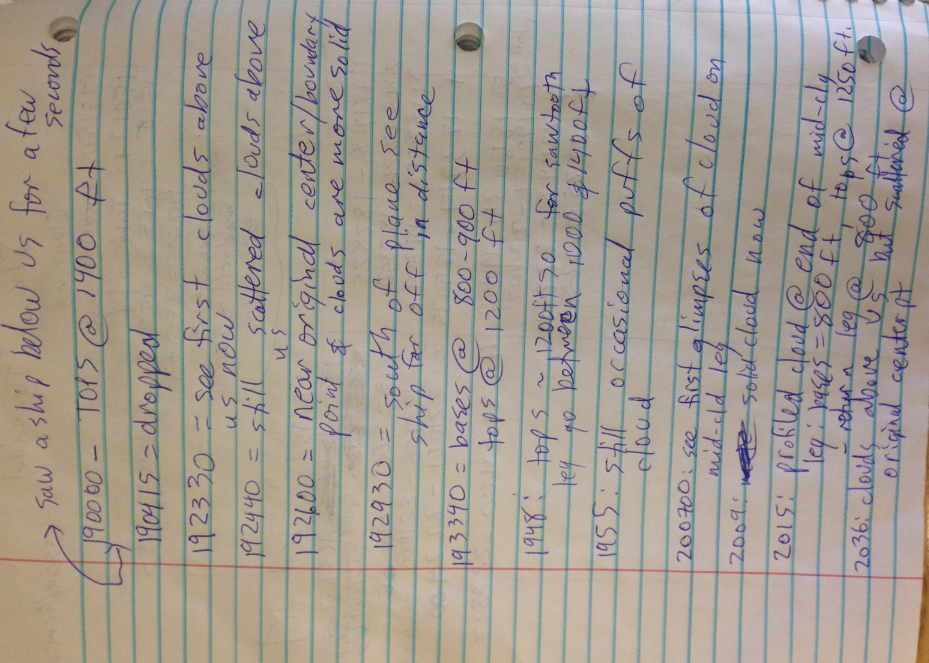 → saw a ship below us for a few
seconds
190000 - TOPS @ 1400 ft
190415 = dropped
192330 = see first clouds above
us now
192440 = still scattered clouds above
us
192600 = near original center/boundary
point & clouds are more solid
192930 = south of plane see
ship far off in distance
193340 = bases @ 800-900 ft
tops @ 1200 ft
1948: tops ~ 1200ft so for sawtooth
leg go between 1000 & 1400ft
1955: still occasional puffs of
cloud
200700: see first glimpses of cloud on
mid-cld leg
2009: solid cloud now
2015: profiled cloud @ end of mid-cld
leg: bases = 800ft tops @ 1250 ft.
- return leg @ 800 ft
2036: clouds above us but scattered @
original center pt